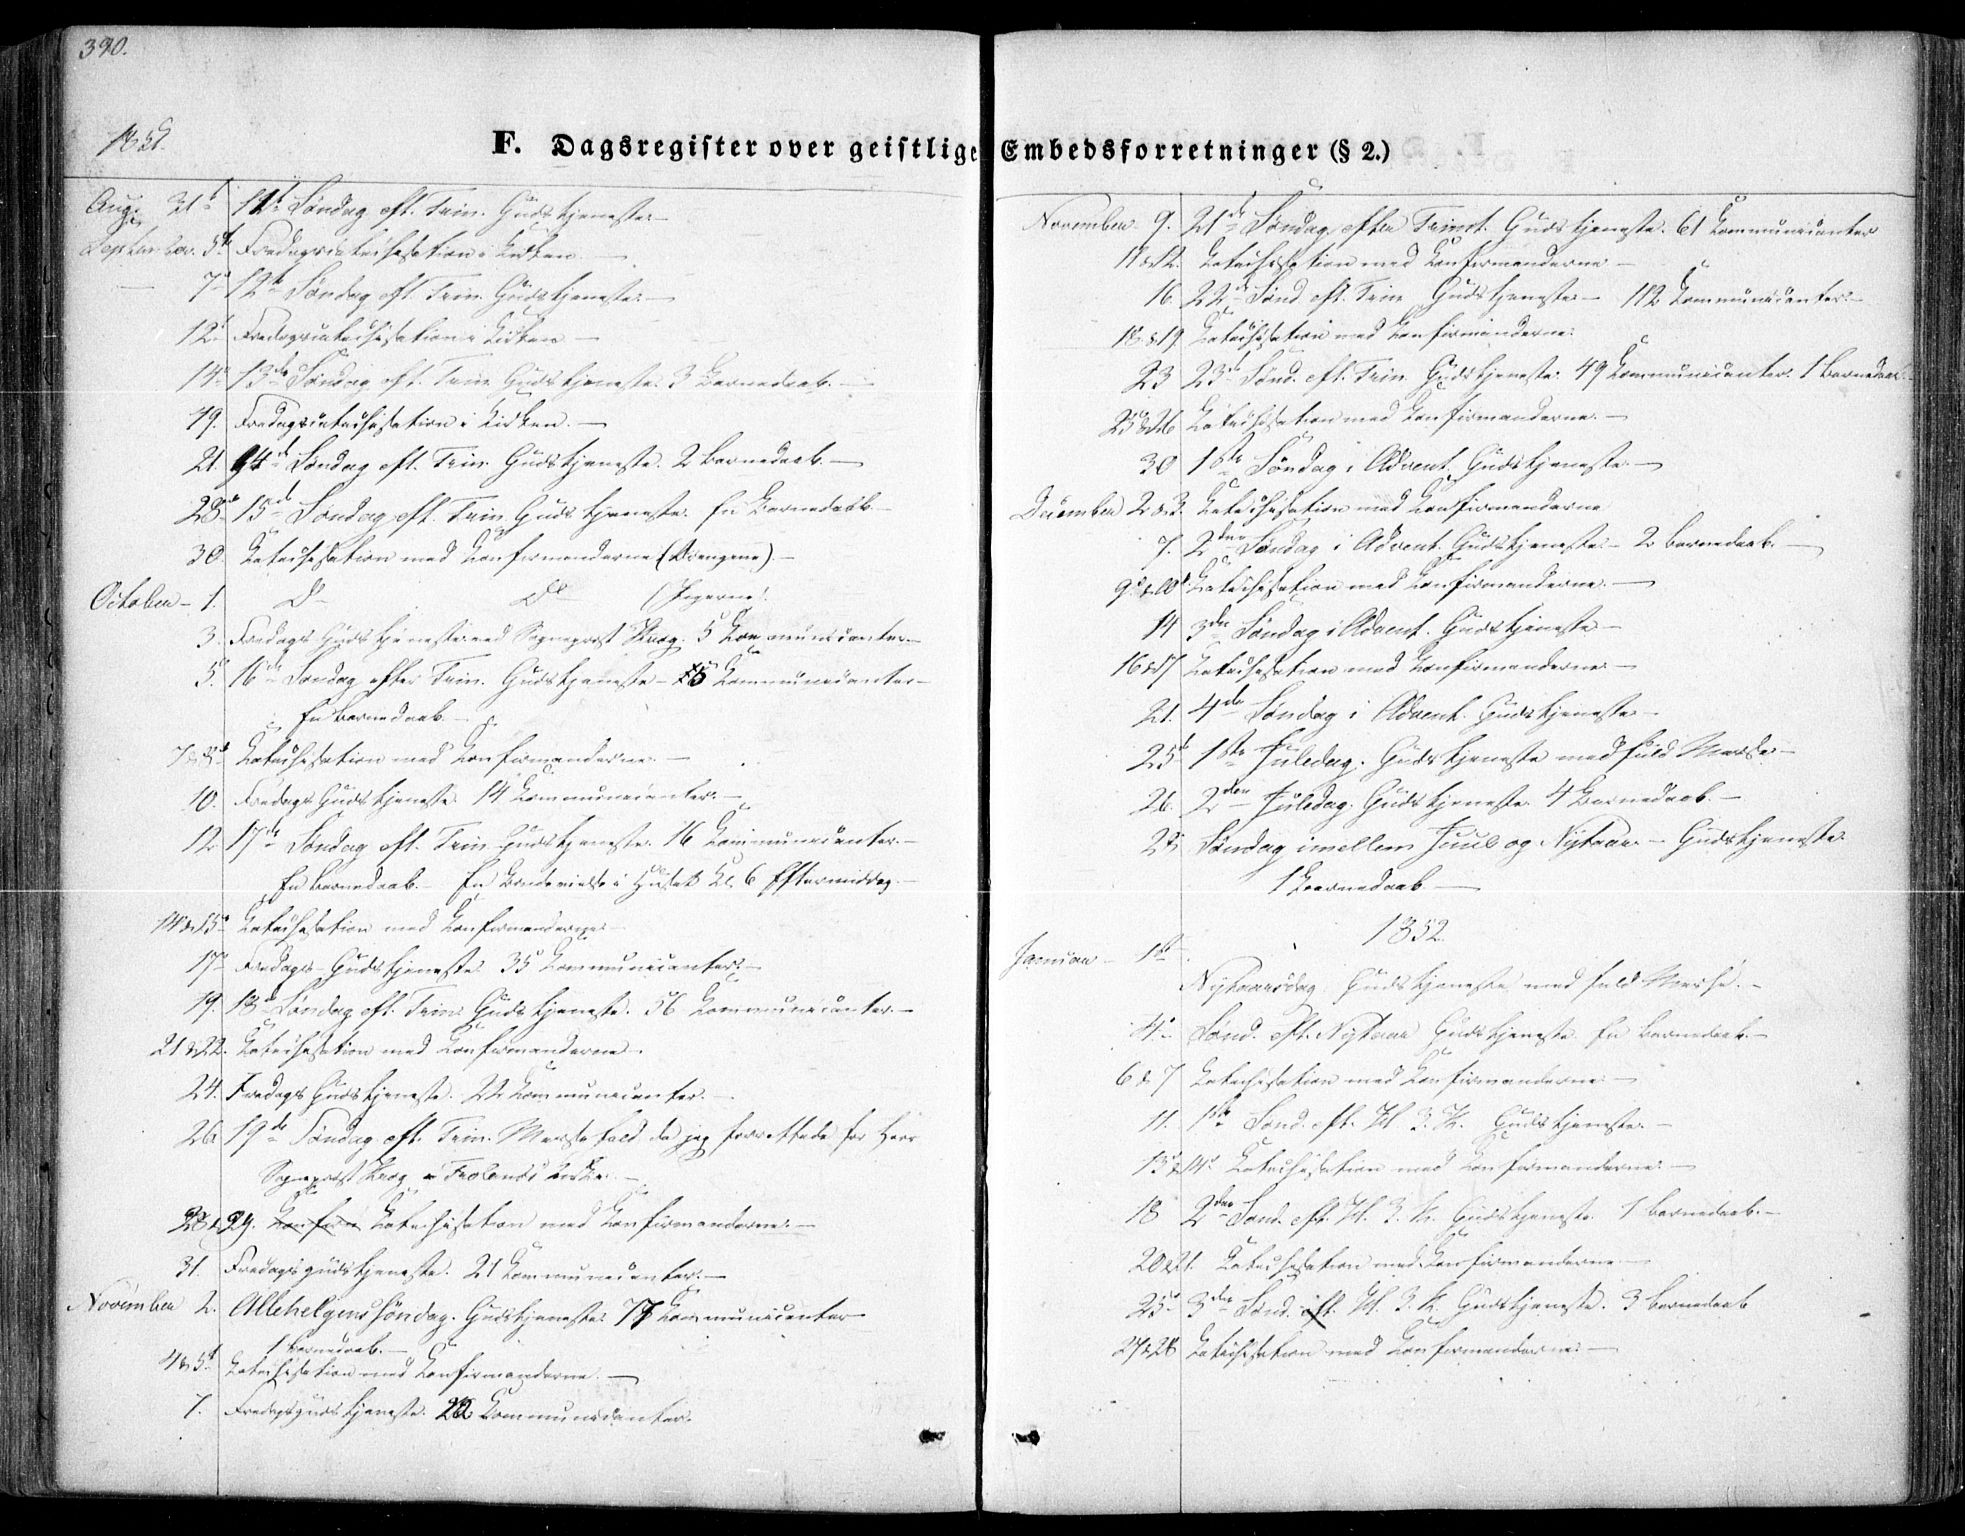 390.
1851.
F. Dagsregister over geistlige Embedsforretninger (§ 2.)
Aug. 31te 11te Søndag eft. Trin. Gudstjeneste
September 5te Fredagscatechisation i Kirken
7de 12te Søndag eft. Trin. Gudstjeneste
12te Fredagscatechisation i Kirken
14de 13de Søndag eft. Trin. Gudstjeneste. 3 Barnedaab.
19. Fredagscatechisation i Kirken.
21. 14de Søndag eft. Trin. Gudstjeneste. 2 Barnedaab.
28de 15de Søndag eft. Trin. Gudstjeneste. En Barnedaab.
30. Catechisation med Confirmanderne (Drengene)
October 1. Do Do (Pigerne)
3. Fredags Gudstjeneste ved Sognepræst Krog. 5 Communicanter
5. 16de Søndag efter Trin. Gudstjeneste Communicanter
En Barnedaab.
7 & 8de Catechisation med Confirmanderne.
10. Fredags Gudstjeneste. 14 Communicanter.
12. 17de Søndag eft. Trin. Gudstjeneste. 16 Communicanter.
En Barnedaab. En Brudevielse i Huset Kl. 6 Eftermiddag.
14 & 15de Catechisation med Confirmanderne
17de Fredags Gudstjeneste. 35 Communicanter.
19. 18de Søndag eft. Trin. Gudstjeneste. 56 Communicanter.
21 & 22. Catechisation med Confirmanderne.
24. Fredags Gudstjeneste. 22 Communicanter.
26. 19de Søndag eft. Trin. Messefald da jeg forrettede for Herr
Sognepræst Krog i Frolands Kirke.
28 & 29. Confirm Catechisation med Confirmanderne.
31. Fredagsgudstjeneste. 21 Communicanter.
November 2. Allehelgenssøndag. Gudstjeneste. 77 Communicanter
1 Barnedaab.
4 & 5te Catechisation med Confirmanderne.
7. Fredagsgudstjeneste. 22 Communicanter.
November 9. 21de Søndag efter Trinit. Gudstjeneste. 61 Communicanter
11 & 12. Catechisation med Confirmanderne
16. 22de Sønd. eft. Trin. Gudstjeneste 112 Communicanter.
18 & 19 Catechisation med Confirmanderne.
23 23de Sønd. eft. Trin. Gudstjeneste. 49 Communicanter. 1 Barnedaab.
25 & 26 Catechisation med Confirmanderne.
30 1ste Søndag i Advent. Gudstjeneste
December 2 & 3. Catechisation med Confirmanderne
7. 2den Søndag i Advent. Gudstjeneste 2 Barnedaab.
9 & 10de Catechisation med Confirmanderne.
14 3die Søndag i Advent. Gudstjeneste
16 & 17 Catechisation med Confirmanderne
21. 4de Søndag i Advent. Gudstjeneste
25de 1ste Juledag. Gudstjeneste med fuld Messe
26. 2den Juledag. Gudstjeneste. 4 Barnedaab.
28 Søndag imellem Juul og Nytaar. Gudstjeneste
1 Barnedaab.
1852.
Januar 1ste
Nytaarsdag. Gudstjeneste med fuld Messe.
4de Sønd. eft. Nytaar Gudstjeneste. En Barnedaab.
6 & 7 Catechisation med Confirmanderne
11. 1ste Sønd. eft. H. 3. K. Gudstjeneste.
13 & 14de Catechisation med Confirmanderne.
18 2den Sønd. eft. H. 3. K. Gudstjeneste. 1 Barnedaab.
20 & 21. Catechisation med Confirmanderne
25de 3die Sønd. eft. H. 3. K. Gudstjeneste. 3 Barnedaab
27 & 28 Catechisation med Confirmanderne.